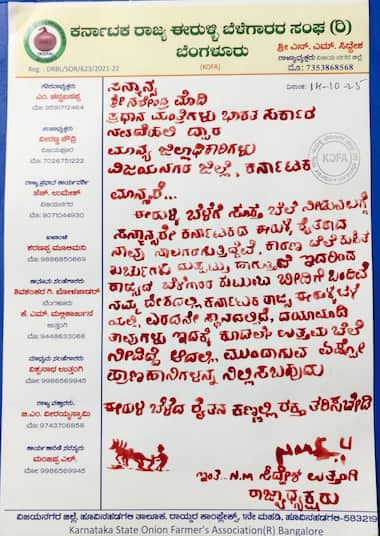 ಕರ್ನಾಟಕ ರಾಜ್ಯ ಈರುಳ್ಳಿ ಬೆಳೆಗಾರರ ಸಂಘ (ರಿ)
ಬೆಂಗಳೂರು
(KOFA)
Reg. : DRBL/SOR/623/2021-22
ಶ್ರೀ ಎನ್. ಎಮ್. ಸಿದ್ದೇಶ
ರಾಜ್ಯಾಧ್ಯಕ್ಷರು ವಿಜಯನಗರ ಜಿಲ್ಲೆ
ಮೊ: 7353868568
ದಿನಾಂಕ: 14-10-25
ಗೌರವಾಧ್ಯಕ್ಷರು
ಎಂ. ಚನ್ನಬಸಪ್ಪ
ಮೊ: 9591712464
ಉಪಾಧ್ಯಕ್ಷರು
ವೀರಣ್ಣ ಚೌದ್ರಿ
ವಿಜಯಪೂರ
ಮೊ: 7026751222
ರಾಜ್ಯ ಪ್ರಧಾನ ಕಾರ್ಯದರ್ಶಿ
ಹೆಚ್. ಉಮೇಶ್
ವಿಜಯನಗರ
ಮೊ: 9071044930
ಖಜಾಂಚಿ
ಕರಬಸಪ್ಪ
ಮೊ: 9886850869
ಕಾನೂನು ಸಲಹೆಗಾರರು
ಶಿವಶಂಕರ ಗಿ.
ಬೆಂಗಳೂರು
ಕೆ. ಎಮ್. ಮಲ್ಲಿಕಾರ್ಜುನ
ಉತ್ತಂಗಿ
ಮೊ: 9448633068
ಮಾಧ್ಯಮ ಸಲಹೆಗಾರರು
ವಿಶ್ವನಾಥ ಉತ್ತಂಗಿ
ಮೊ: 9986569945
ರಾಜ್ಯ ವಕ್ತಾರರು
ಜಿ.ಎಂ. ವೀರಯ್ಯಸ್ವಾಮಿ
ಮೊ: 9743706858
ಕಾರ್ಯಕಾರಿಣಿ ಸದಸ್ಯರು
ಮಂಜಪ್ಪ ಎಲ್.
ಮೊ: 9986569945
ಸನ್ಮಾನ್ಯ
ಶ್ರೀ ನರೇಂದ್ರ ಮೋದಿ
ಪ್ರಧಾನ ಮಂತ್ರಿಗಳು ಭಾರತ ಸರ್ಕಾರ
ನವದೆಹಲಿ ದ್ವಾರ
ಮಾನ್ಯ ಜಿಲ್ಲಾಧಿಕಾರಿಗಳು
ವಿಜಯನಗರ ಜಿಲ್ಲೆ, ಕರ್ನಾಟಕ
KOFA
ಮಾನ್ಯರೆ...
ಈರುಳ್ಳಿ ಬೆಳೆಗೆ ಸೂಕ್ತ ಬೆಲೆ
ಸನ್ಮಾನ್ಯರೇ ಕರ್ನಾಟಕದ ಈರುಳ್ಳಿ ರೈತರಾದ
ನಾವು ಕಾರಣ ಬೆಲೆ ಕುಸಿತ
ಖರ್ಚುಗಳು ಇದರಿಂದ
ರಾಜ್ಯದ ಬೆಳೆಗಾರರ ಕುಟುಂಬ ಬೀದಿಗೆ ಬಂದಿವೆ
ನಮ್ಮ ದೇಶದಲ್ಲಿ ಕರ್ನಾಟಕ ರಾಜ್ಯ ಈರುಳ್ಳಿ
ಎರಡನೇ ಸ್ಥಾನದಲ್ಲಿದೆ, ದಯಮಾಡಿ
ತಾವುಗಳು ಇದಕ್ಕೆ ಕೂಡಲೇ ಉತ್ತಮ ಬೆಲೆ
ನೀಡಿದ್ದೆ ಆದಲ್ಲಿ ಮುಂದಾಗುವ ಎಷ್ಟೋ
ಪ್ರಾಣಹಾನಿಗಳನ್ನು ನಿಲ್ಲಿಸಬಹುದು
ಈರುಳ್ಳಿ ಬೆಳೆದ ರೈತನ ಕಣ್ಣಲ್ಲಿ ರಕ್ತ ತರಿಸಬೇಡಿ
ಇಂತಿ.. N.M ಸಿದ್ದೇಶ ಉತ್ತಂಗಿ
ರಾಜ್ಯಾಧ್ಯಕ್ಷರು
ವಿಜಯನಗರ ಜಿಲ್ಲೆ, ಹೂವಿನಹಡಗಲಿ ತಾಲೂಕ, ರಾಯ್ಕರ ಕಾಂಪ್ಲೇಕ್ಸ್, 1ನೇ ಮಹಡಿ, ಹೂವಿನಹಡಗಲಿ-583219
Karnataka State Onion Farmer's Association(R) Bangalore